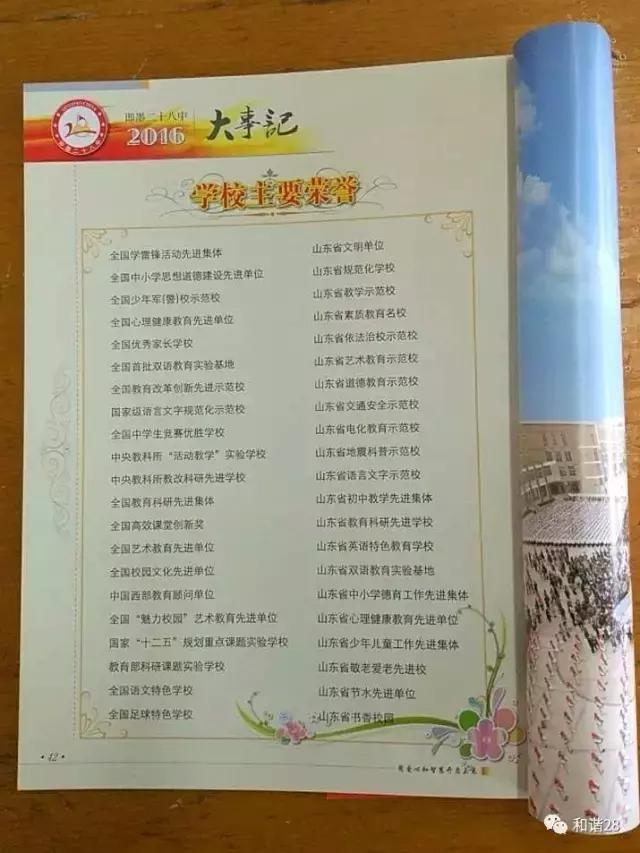 即墨二十八中
2016
大事记
学校主要荣誉
全国学雷锋活动先进集体
全国中小学思想道德建设先进单位
全国少年军(警)校示范校
全国心理健康教育先进单位
全国优秀家长学校
全国首批双语教育实验基地
全国教育改革创新先进示范校
国家级语言文字规范化示范校
全国中学生竞赛优胜学校
中央教科所“活动教学”实验学校
中央教科所教改科研先进学校
全国教育科研先进集体
全国高效课堂创新奖
全国艺术教育先进单位
全国校园文化先进单位
中国西部教育顾问单位
全国“魅力校园”艺术教育先进单位
国家“十二五”规划重点课题实验学校
教育部科研课题实验学校
全国语文特色学校
全国足球特色学校
山东省文明单位
山东省规范化学校
山东省教学示范校
山东省素质教育名校
山东省依法治校示范校
山东省艺术教育示范校
山东省道德教育示范校
山东省交通安全示范校
山东省电化教育示范校
山东省地震科普示范校
山东省语言文字示范校
山东省初中教学先进集体
山东省教育科研先进学校
山东省英语特色教育学校
山东省双语教育实验基地
山东省中小学德育工作先进集体
山东省心理健康教育先进单位
山东省少年儿童工作先进集体
山东省敬老爱老先进校
山东省节水先进单位
山东省书香校园
·42·
用爱心和智慧开启未来
和谐28